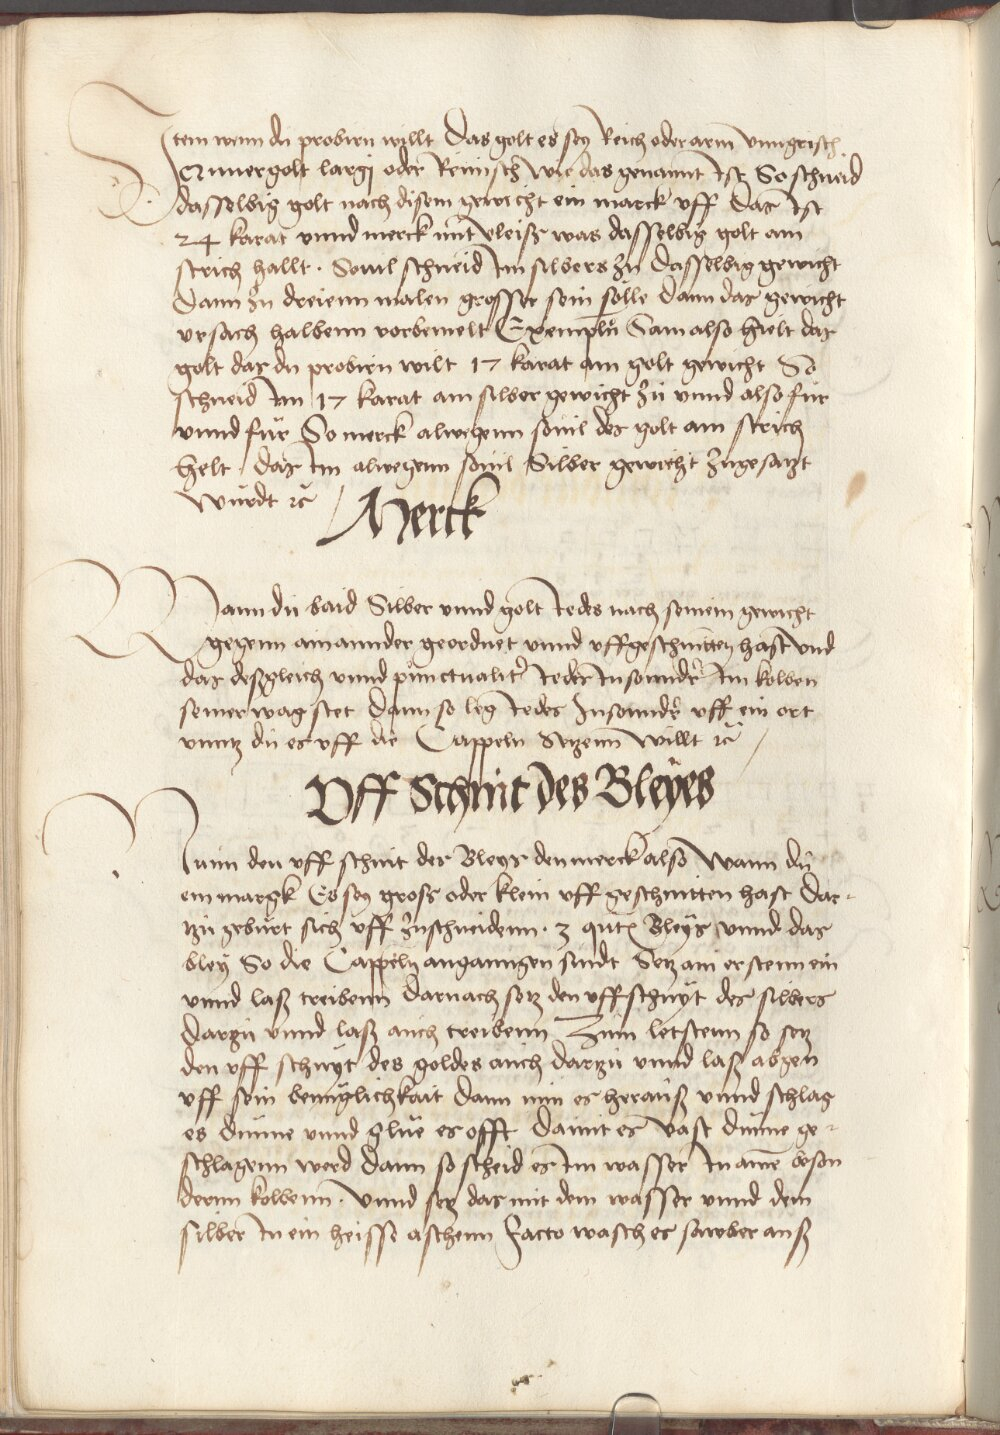 Item wenn du probirn willt Das golt es sey Reich oder arm vnngrisch
Cronnergolt largj oder Reinisch wie das genannt Ist So schneid
dasselbig golt nach disem gewicht ein marck vff Das Ist
24 karat vnnd merck mit vleiß was dasselbig golt am
strich hallt. Souil schneid Im silbers zu Dasselbig gewicht
Dann zu dreienn malen grosser sein sölle dann das gewicht
vrsach halbenn vorbemelt Exemplu Sam also hielt das
golt das du probirn wilt 17 karat am golt gewicht So
schneid Im 17 karat am silber gewicht zu vnnd also für
vnnd für So merck alwegenn souil des golt am strich
helt. das Im alwegenn souil Silber gewicht zugesatzt
würdt rc
Merck
Wann du baid Silber vnnd golt Iedes nach seinem gewicht
gegenn ainannder geordnet vnnd vffgeschnitten hast Vnd
das deßgleich vnnd punctualiter Ieder Insonnder Im kolben
seiner wag stet Dann so leg Iedes Insonnder vff ein ort
vnntz du es vff die Cappeln Setzenn willt rc
Vff Schnit des Bleyes
Nunn den vff schnit des Bleys den merck also Wann du
ein margk Es sey gross oder klein vff geschnitten hast Dar-
tzu gebürt sich vff zuschneidenn. 3 Bleys vnnd das
bley So die Cappeln angangen sindt Setz am erstenn ein
vnnd laß treibenn Darnach setz den vffschnyt des silbers
Dartzu vnnd laß auch treibenn Zum letstenn so setz
den vff schnyt des goldes auch dartzu vnnd laß abgen
vff sein benüglichkait Dann nim es herauß vnnd schlag
es Dünne vnnd glüe es offt Damit es Vast Dünne ge-
schlagenn werd Dann so scheid es Im wasser In ainem beson
dernn kolbenn. Vnnd setz das mit dem wasser vnnd dem
silber In ein heisse aschenn Facto wasch es sawber auß